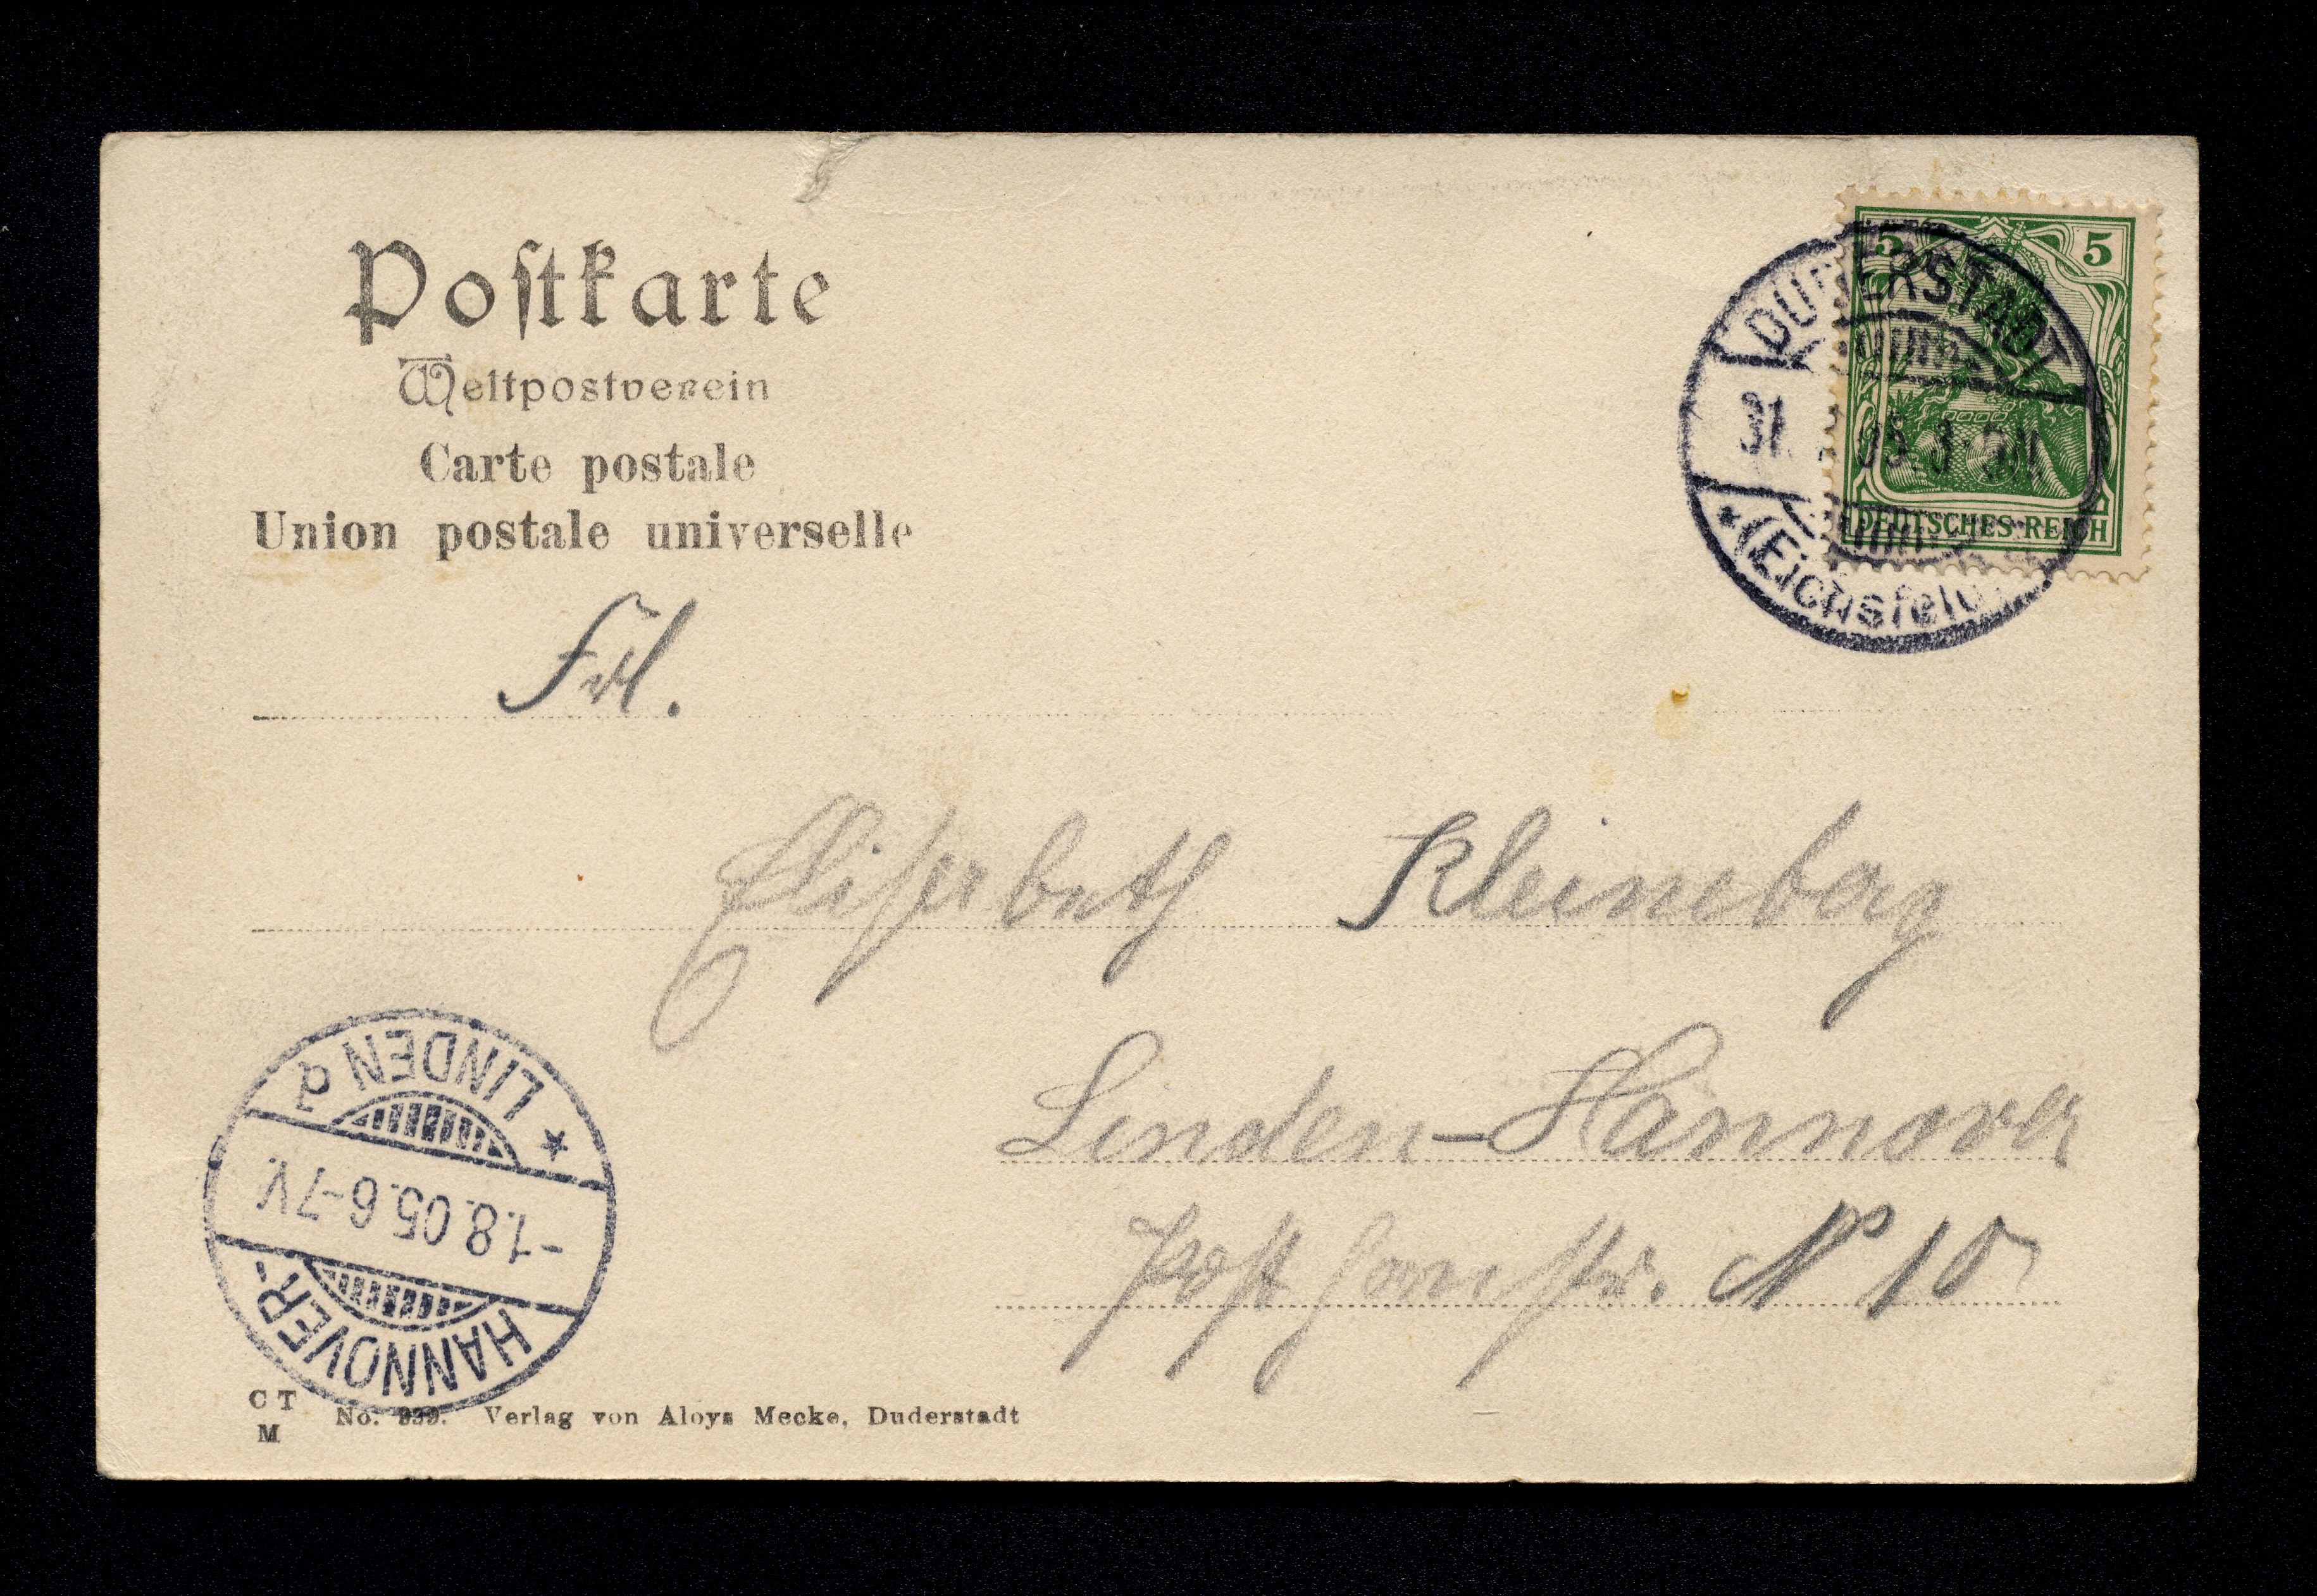 Postkarte
Weltpostverein
Carte postale
Union postale universelle
5 5
DUDERSTADT
31. 05. 3
DEUTSCHES REICH
(Eichsfeld)
Frl.
Elisabeth Kleineberg
Linden-Hannover
str. No 10
LINDEN d
-1.8.05.6-7V.
HANNOVER-
C T
M
No. 939. Verlag von Aloys Mecke, Duderstadt